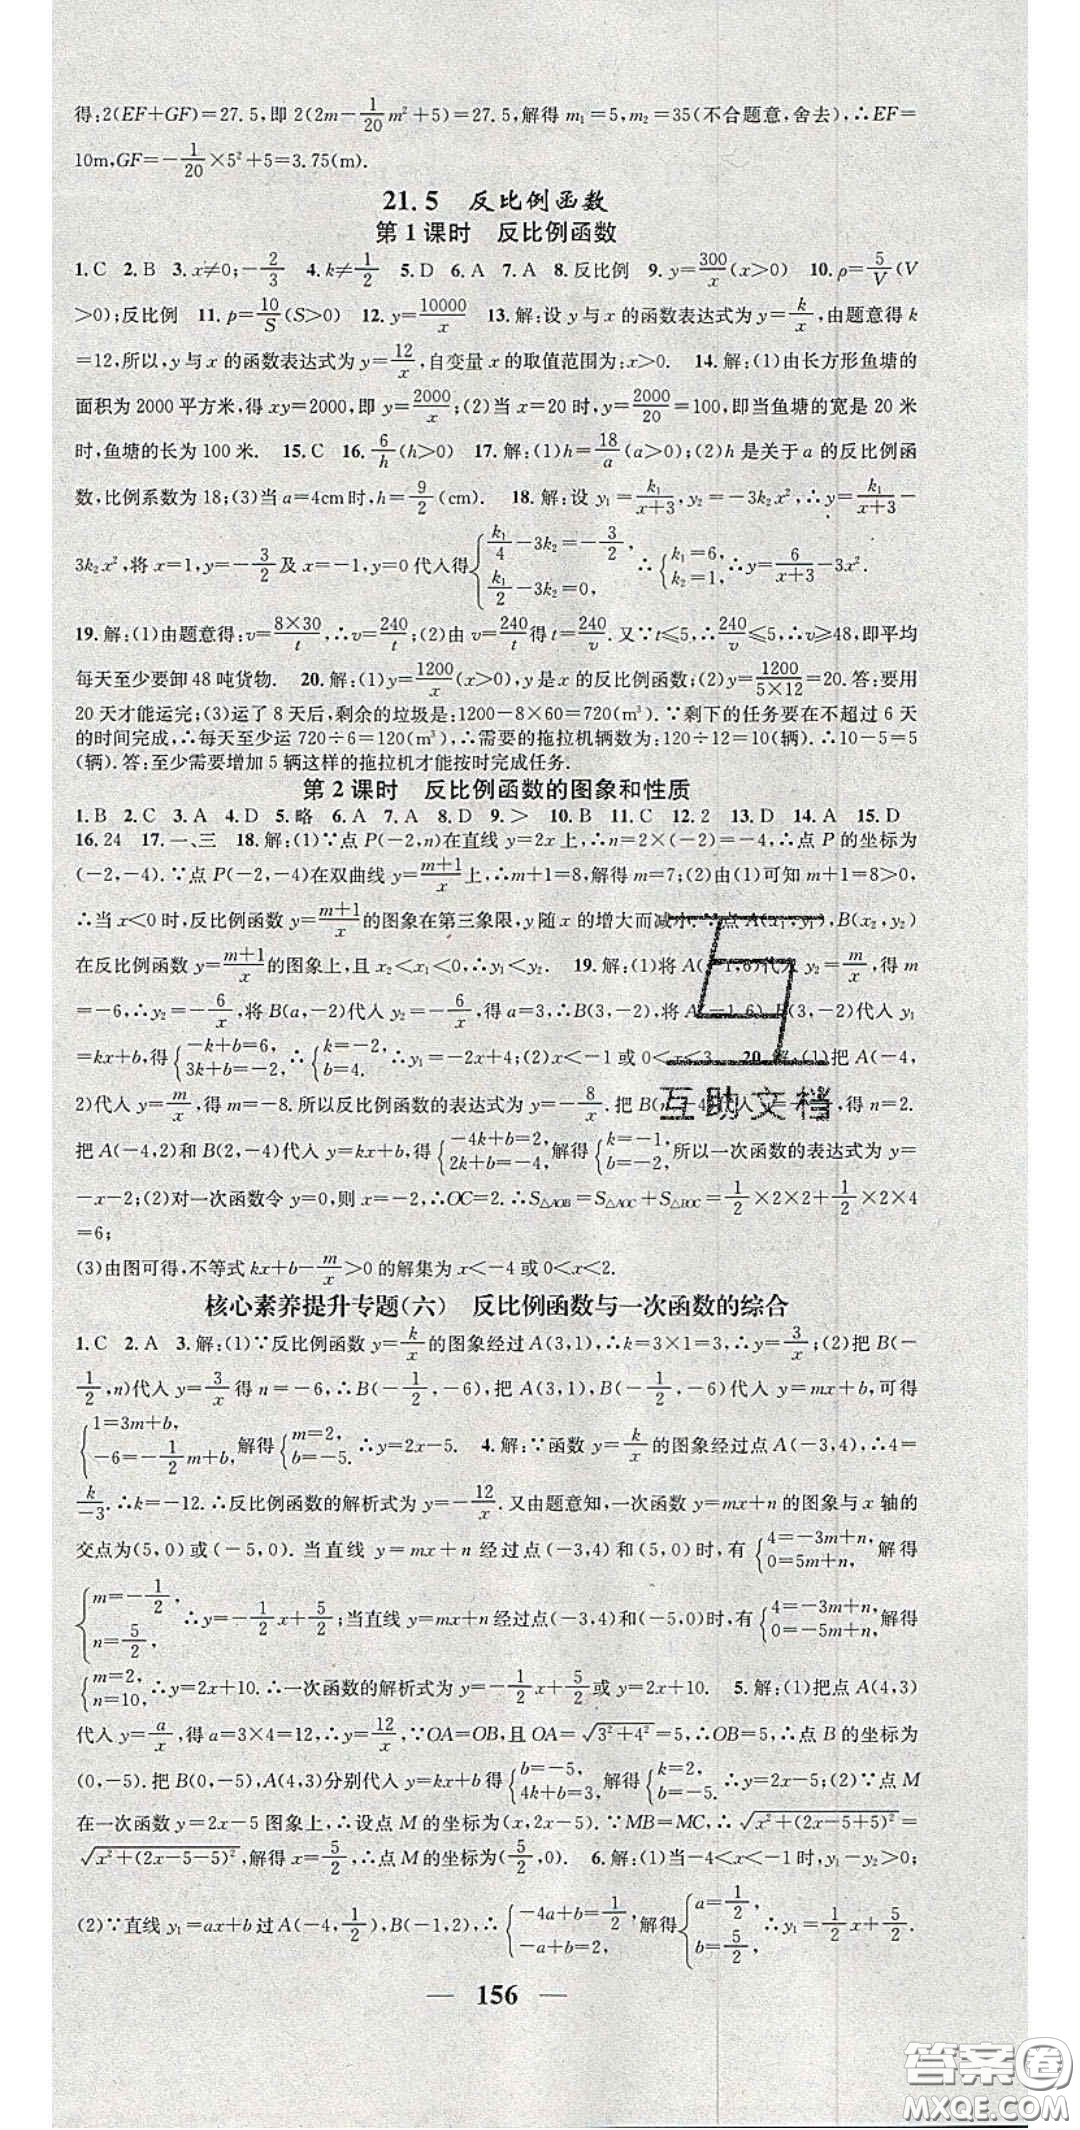 得:2(EF+GF)=27.5,即 2(2m-1/20m²+5)=27.5,解得 m₁=5,m₂=35(不合题意,舍去),∴EF=
10m,GF=-1/20×5²+5=3.75(m).
21.5 反比例函数
第 1 课时 反比例函数
1.C 2.B 3.x≠0;-2/3 4.k≠1/2 5.D 6.A 7.A 8.反比例 9.y=300/x(x>0) 10.ρ=5/V(V
>0);反比例 11.p=10/S(S>0) 12.y=10000/x 13.解:设 y 与 x 的函数表达式为 y=k/x,由题意得 k
=12,所以,y 与 x 的函数表达式为 y=12/x,自变量 x 的取值范围为:x>0. 14.解:(1)由长方形鱼塘的
面积为 2000 平方米,得 xy=2000,即 y=2000/x;(2)当 x=20 时,y=2000/20=100,即当鱼塘的宽是 20 米
时,鱼塘的长为 100 米. 15.C 16.6/h(h>0) 17.解:(1)h=18/a(a>0);(2)h 是关于 a 的反比例函
数,比例系数为 18;(3)当 a=4cm 时,h=9/2(cm). 18.解:设 y₁=k₁/(x+3),y₂=-3k₂x²,∴y=k₁/(x+3)-
3k₂x²,将 x=1,y=-3/2 及 x=-1,y=0 代入得{k₁/4-3k₂=-3/2, k₁/2-3k₂=0, ∴{k₁=6, k₂=1, ∴y=6/(x+3)-3x².
19.解:(1)由题意得:v=8×30/t,∴v=240/t;(2)由 v=240/t 得 t=240/v.又∵t≤5,∴240/v≤5,∴v≥48,即平均
每天至少要卸 48 吨货物. 20.解:(1)y=1200/x(x>0),y 是 x 的反比例函数;(2)y=1200/(5×12)=20.答:要用
20 天才能运完;(3)运了 8 天后,剩余的垃圾是:1200-8×60=720(m³).∵剩下的任务要在不超过 6 天
的时间完成,∴每天至少运 720÷6=120(m³),∴需要的拖拉机辆数为:120÷12=10(辆).∴10-5=5
(辆).答:至少需要增加 5 辆这样的拖拉机才能按时完成任务.
第 2 课时 反比例函数的图象和性质
1.B 2.C 3.A 4.D 5.略 6.A 7.A 8.D 9.> 10.B 11.C 12.2 13.D 14.A 15.D
16.24 17.一、三 18.解:(1)∵点 P(-2,n)在直线 y=2x 上,∴n=2×(-2)=-4,∴点 P 的坐标为
(-2,-4).∵点 P(-2,-4)在双曲线 y=(m+1)/x 上,∴m+1=8,解得 m=7;(2)由(1)可知 m+1=8>0,
∴当 x<0 时,反比例函数 y=(m+1)/x 的图象在第三象限,y 随 x 的增大而减小.∵点 A(x₁,y₁),B(x₂,y₂)
在反比例函数 y=(m+1)/x 的图象上,且 x₂<x₁<0,∴y₁<y₂. 19.解:(1)将 A(-1,6)代入 y₂=m/x,得 m
=-6,∴y₂=-6/x,将 B(a,-2)代入 y₂=-6/x,得 a=3,∴B(3,-2),将 A(-1,6),B(3,-2)代入 y₁
=kx+b,得{-k+b=6, 3k+b=-2, ∴{k=-2, b=4. ∴y₁=-2x+4;(2)x<-1 或 0<x<3. 20.解:(1)把 A(-4,
2)代入 y=m/x,得 m=-8.所以反比例函数的表达式为 y=-8/x.把 B(n,-4)代入 y=-8/x,得 n=2.
把 A(-4,2)和 B(2,-4)代入 y=kx+b,得{-4k+b=2, 2k+b=-4, 解得{k=-1, b=-2, 所以一次函数的表达式为 y=
-x-2;(2)对一次函数令 y=0,则 x=-2,∴OC=2.∴S△AOB=S△AOC+S△BOC=1/2×2×2+1/2×2×4
=6;
(3)由图可得,不等式 kx+b-m/x>0 的解集为 x<-4 或 0<x<2.
核心素养提升专题(六) 反比例函数与一次函数的综合
1.C 2.A 3.解:(1)∵反比例函数 y=k/x 的图象经过 A(3,1),∴k=3×1=3,∴y=3/x;(2)把 B(-
1/2,n)代入 y=3/x 得 n=-6,∴B(-1/2,-6),把 A(3,1),B(-1/2,-6)代入 y=mx+b,可得
{1=3m+b, -6=-1/2m+b, 解得{m=2, b=-5. ∴y=2x-5. 4.解:∵函数 y=k/x 的图象经过点 A(-3,4),∴4=
k/-3.∴k=-12.∴反比例函数的解析式为 y=-12/x.又由题意知,一次函数 y=mx+n 的图象与 x 轴的
交点为(5,0)或(-5,0).当直线 y=mx+n 经过点(-3,4)和(5,0)时,有{4=-3m+n, 0=5m+n, 解得
{m=-1/2, n=5/2, ∴y=-1/2x+5/2;当直线 y=mx+n 经过点(-3,4)和(-5,0)时,有{4=-3m+n, 0=-5m+n, 解得
{m=2, n=10, ∴y=2x+10.∴一次函数的解析式为 y=-1/2x+5/2或 y=2x+10. 5.解:(1)把点 A(4,3)
代入 y=a/x,得 a=3×4=12,∴y=12/x,∵OA=OB,且 OA=√(3²+4²)=5,∴OB=5,∴点 B 的坐标为
(0,-5).把 B(0,-5),A(4,3)分别代入 y=kx+b 得{b=-5, 4k+b=3, 解得{k=2, b=-5. ∴y=2x-5;(2)∵点 M
在一次函数 y=2x-5 图象上,∴设点 M 的坐标为(x,2x-5).∵MB=MC,∴√(x²+(2x-5+5)²)=
√(x²+(2x-5-5)²),解得 x=5/2,∴点 M 的坐标为(5/2,0). 6.解:(1)当-4<x<-1 时,y₁-y₂>0;
(2)∵直线 y₁=ax+b 过 A(-4,1/2),B(-1,2),∴{-4a+b=1/2, -a+b=2, 解得{a=1/2, b=5/2, ∴y₁=1/2x+5/2.
互助文档
— 156 —
答案圈
MXQE.COM